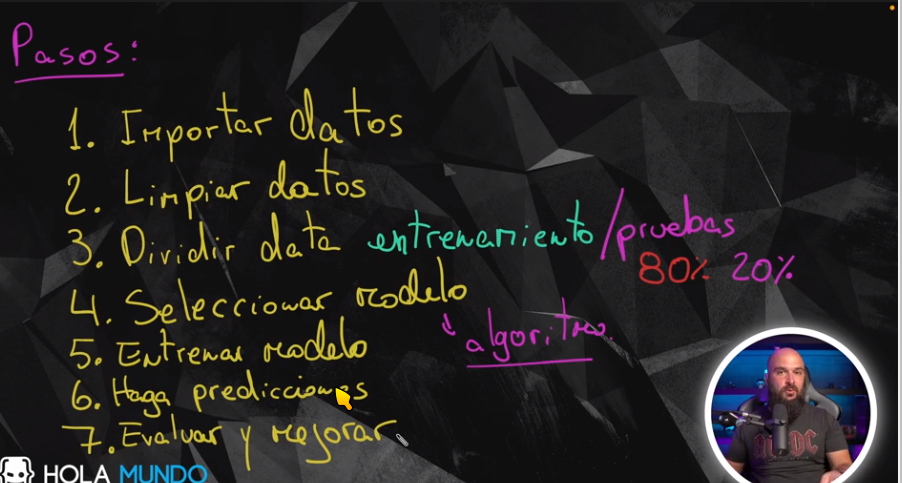 Pasos:
1. Importar datos
2. Limpiar datos
3. Dividir data entrenamiento/pruebas
80% 20%
4. Seleccionar modelo
algoritmo.
5. Entrenar modelo
6. Haga predicciones
7. Evaluar y mejorar
HOLA MUNDO
AC DC